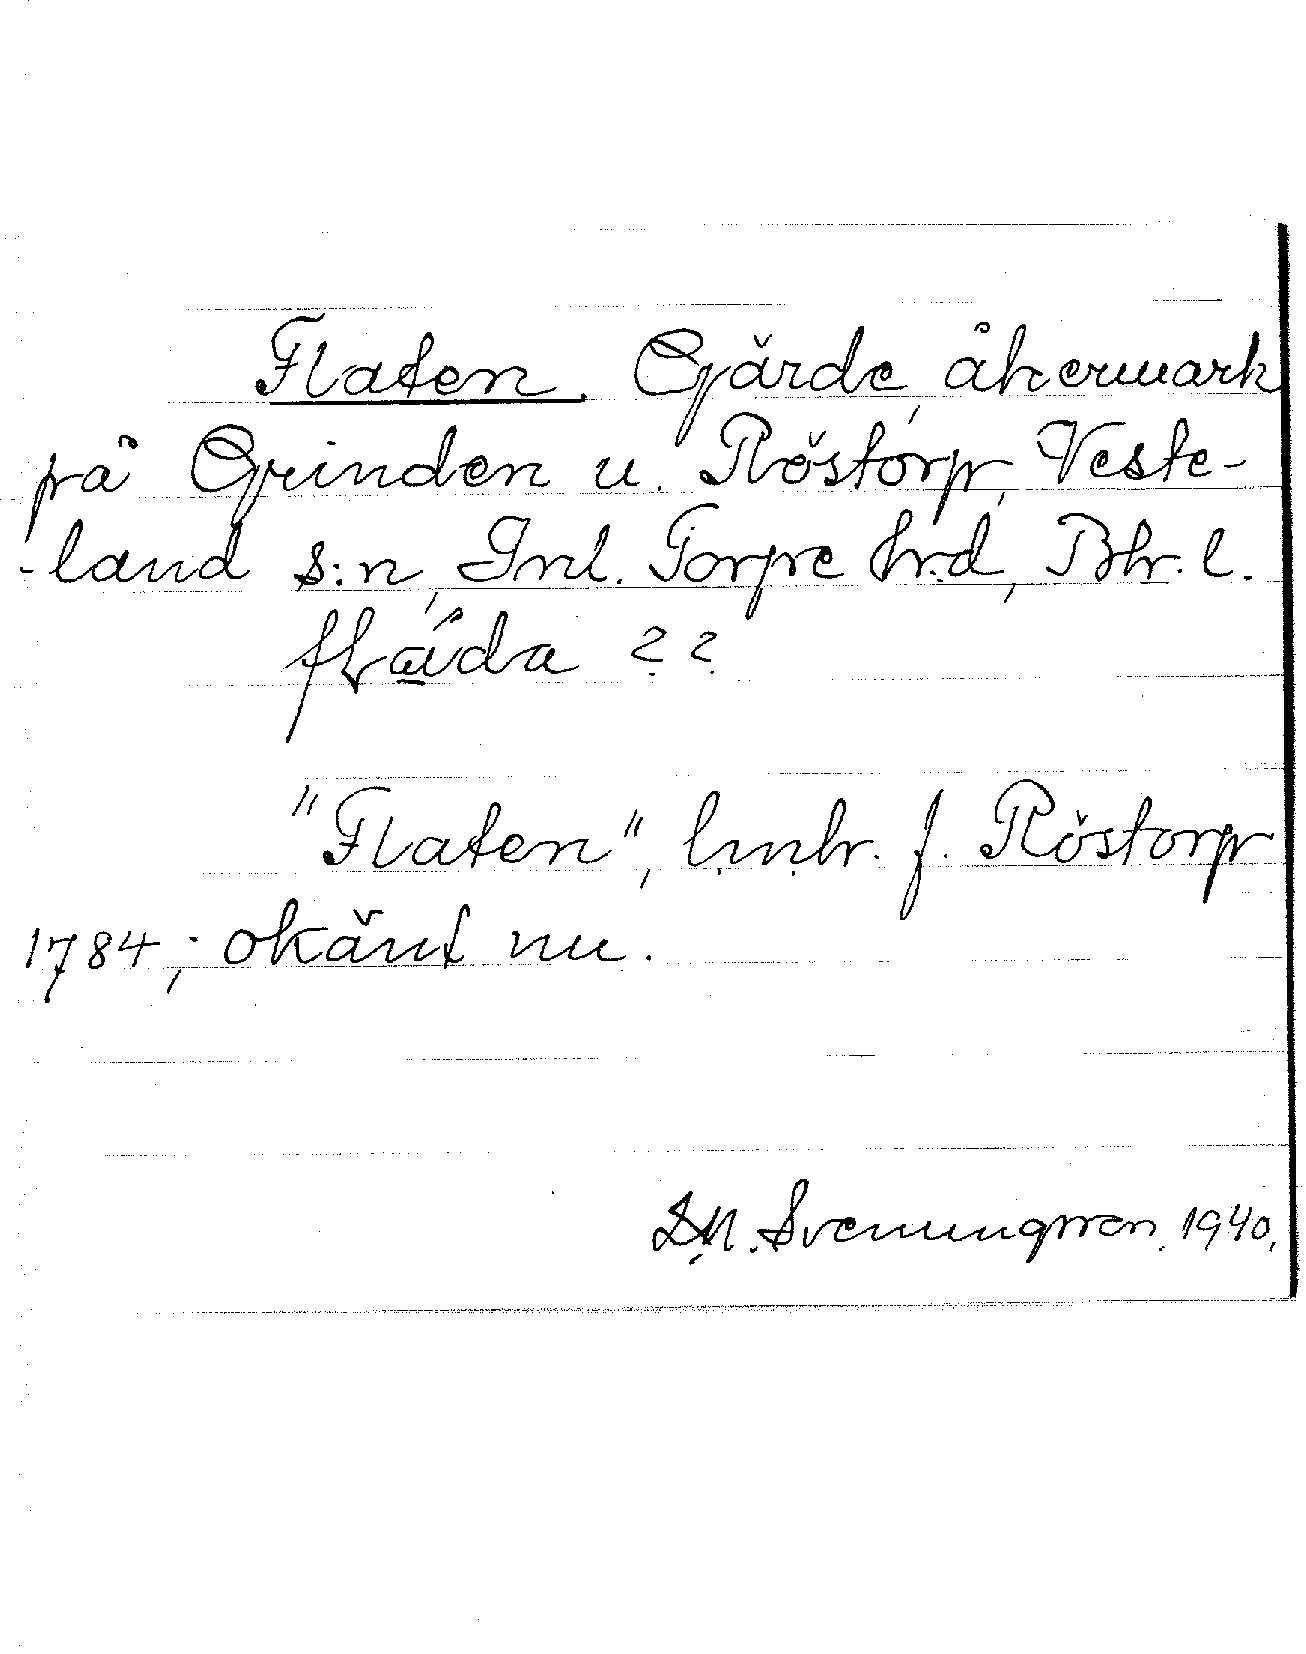 Flaten. Gärde, åkermark
på Grinden u. Röstorp, Veste-
-land s:n, Inl. Torpe hrd, Bhr. l.
flåda ??
"Flaten", lmhr. f. Röstorp
1784; okänt nu.
Svenungsson 1940.